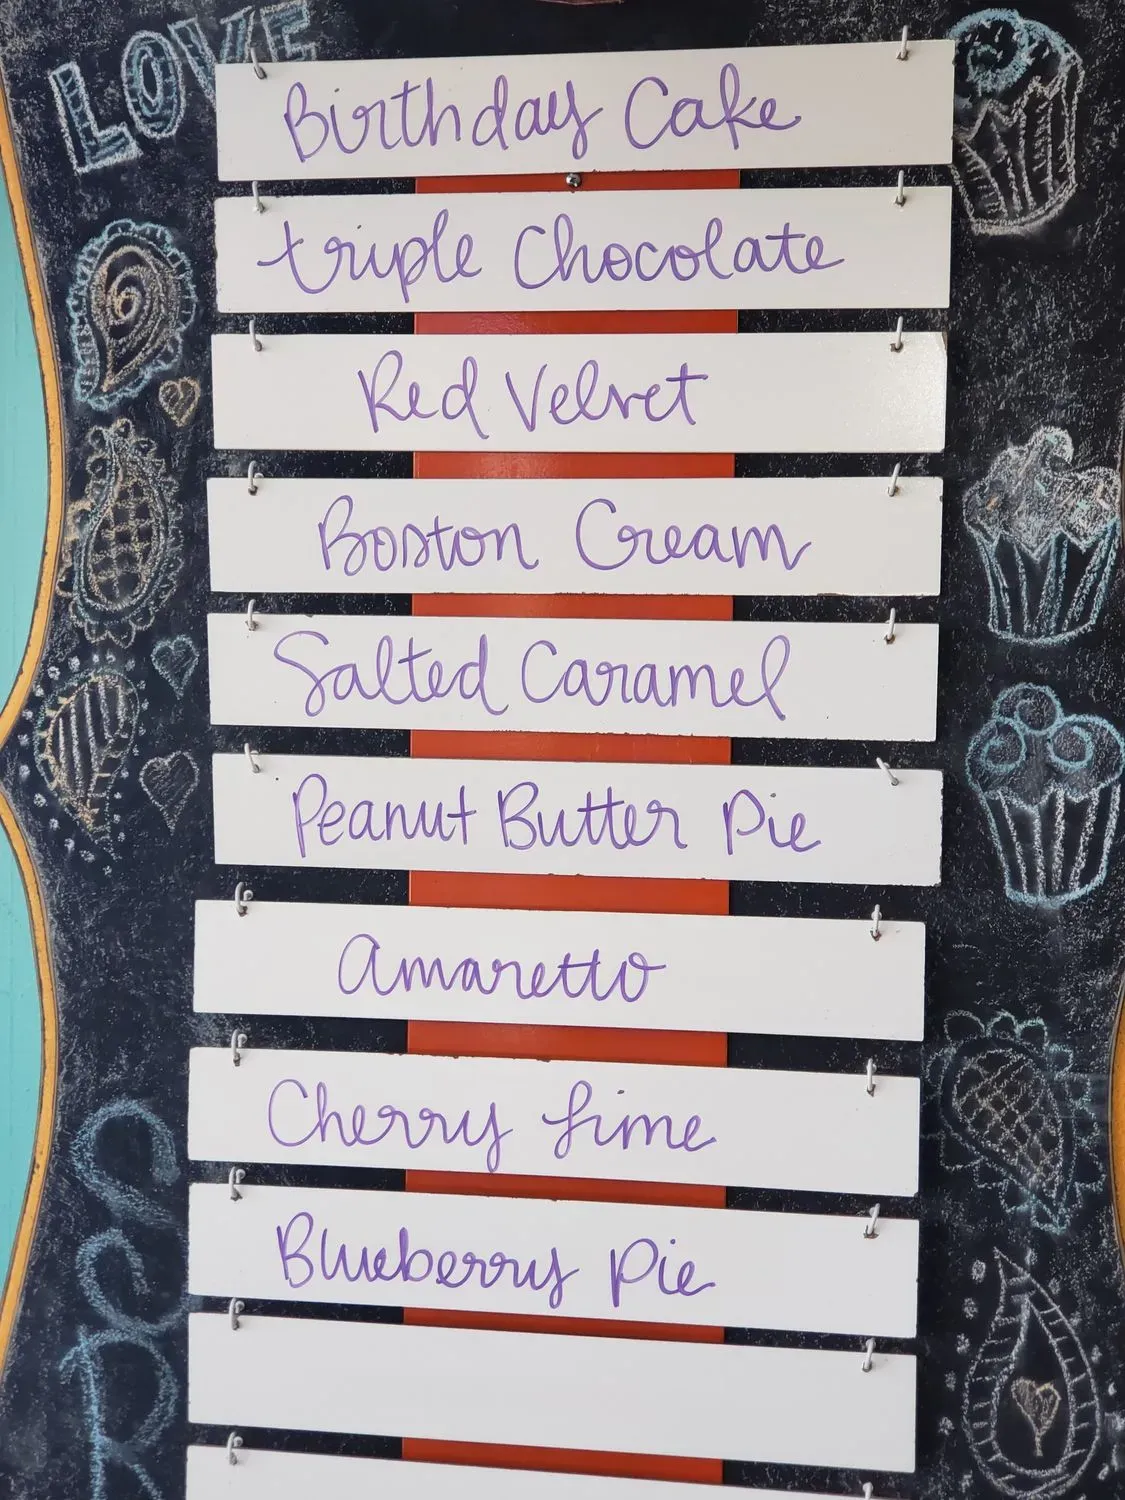 LOVE
Birthday Cake
triple Chocolate
Red Velvet
Boston Cream
Salted Caramel
Peanut Butter Pie
Amaretto
Cherry Lime
Blueberry Pie